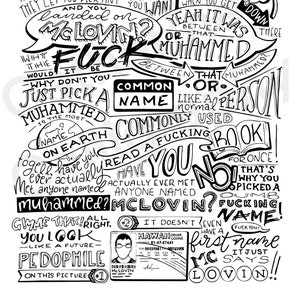 THEY LET YOU PICK ANY
AND YOU
landed on
McLOVIN?
YEAH IT WAS
BETWEEN
THAT
OR
MUHAMMED
DOWN
THERE
WHY THE
FUCK
WOULD IT BE
BETWEEN THAT OR MUHAMMED?
WHY DON'T YOU
JUST PICK A
COMMON
NAME
LIKE A
NORMAL
PERSON
MUHAMMED
IS THE MOST
COMMONLY
USED
NAME
ON EARTH
READ A FUCKING
BOOK!
FOR ONCE!
Fogell, have you
ever actually
met anyone named
muhammed?
HAVE YOU
ACTUALLY EVER MET
ANYONE NAMED
McLOVIN?
NO!
THAT'S
WHY YOU
PICKED A
FUCKING
NAME!
FUCK YOU!
Gimme that
ALL
RIGHT.
YOU LOOK
LIKE A FUTURE
PEDOPHILE
ON THIS PICTURE
#1
#2
IT DOESN'T
EVEN
have a
first name
IT JUST
SAYS
McLOVIN!!
HAWAII
01-47-87441
McLOVIN